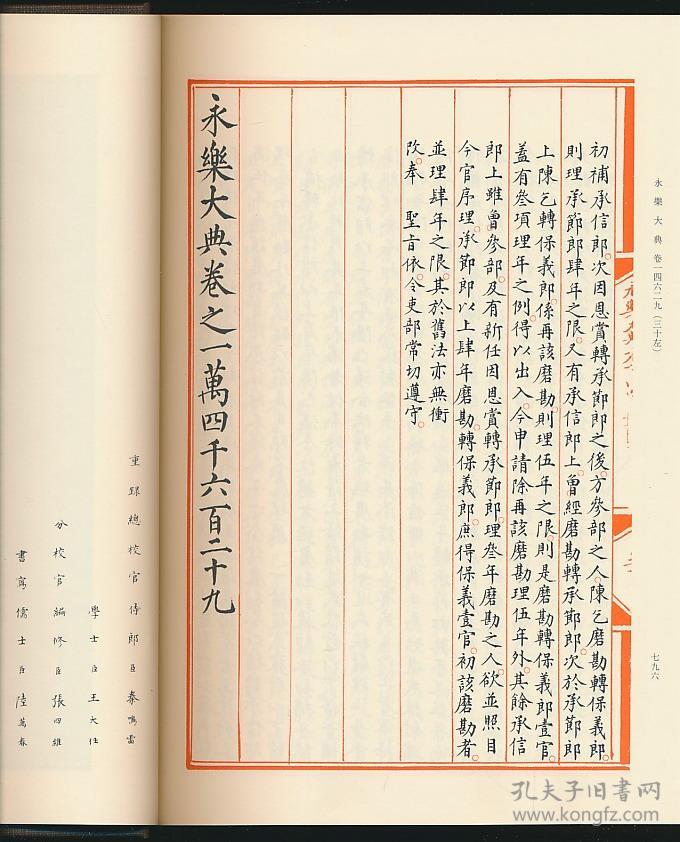 永樂大典 卷一四六二九(三十左)
七九六
初補承信郎。次因恩賞轉承節郎之後。方參部之人。陳乞磨勘轉保義郎。
則理承節郎肆年之限。又有承信郎上。曾經磨勘轉承節郎。次於承節郎
上陳乞轉保義郎。係再該磨勘。則理伍年之限。則是磨勘轉保義郎壹官。
蓋有叁項理年之例。得以出入。今申請除再該磨勘理伍年外。其餘承信
郎上雖曾參部。及有新任因恩賞轉承節郎。理叁年磨勘之人。欲並照目
今官序。理承節郎以上肆年磨勘。轉保義郎。庶得保義壹官。初該磨勘者。
並理肆年之限。其於舊法亦無衝
改。奉 聖旨依。令吏部常切遵守。
永樂大典卷之一萬四千六百二十九
重錄總校官侍郎臣秦鳴雷
學士臣王大任
分校官編修臣張四維
書寫儒士臣陸萬春
孔夫子旧书网
www.kongfz.com